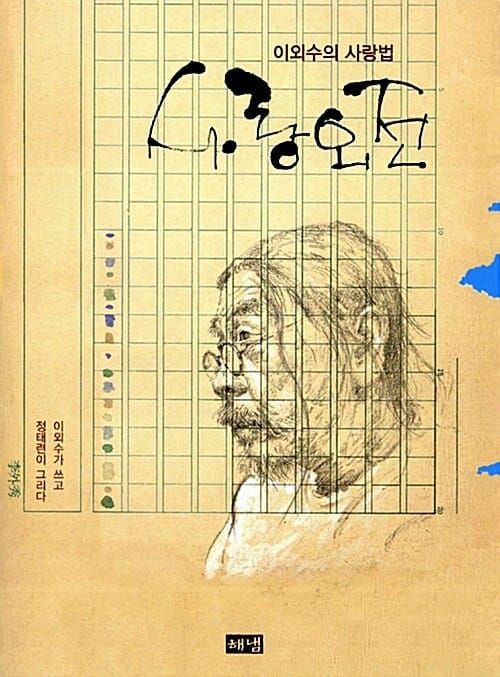 이외수의 사랑법
사랑외전
5
10
15
20
이외수가 쓰고
정태련이 그리다
해냄